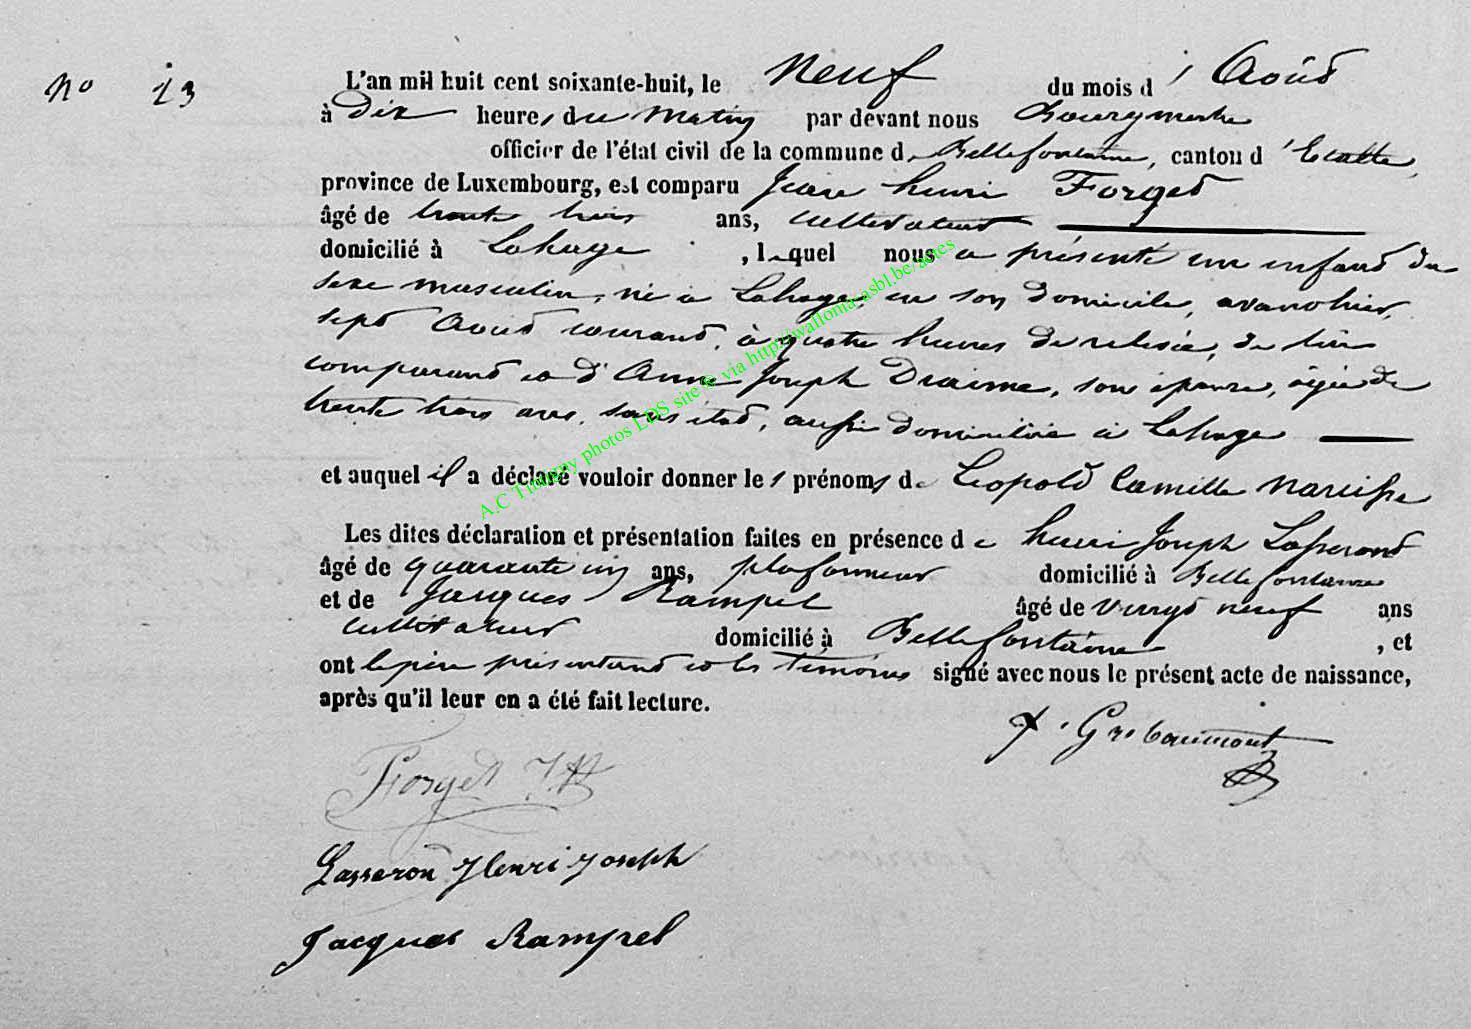 No 13
L'an mil huit cent soixante-huit, le Neuf du mois d' Août
à Dix heures du Matin par devant nous Bourgmestre
officier de l'état civil de la commune de Bellefontaine, canton d'Etalle,
province de Luxembourg, est comparu Jean henri Forget
âgé de trente trois ans, cultivateur
domicilié à Lahage, lequel nous a présenté un enfant du
sexe masculin, né à Lahage, en son domicile, avanthier,
sept Août courant, à quatre heures de relevée, de lui
comparant et d'Anne Joseph Draime, son épouse, âgée de
trente trois ans, sans état, aussi domiciliée à Lahage
et auquel il a déclaré vouloir donner les prénoms de Léopold Camille Narcisse
Les dites déclaration et présentation faites en présence de henri Joseph Lasserond
âgé de quarante un ans, plafonneur domicilié à Bellefontaine
et de Jacques Rampel âgé de vingt neuf ans
cultivateur domicilié à Bellefontaine, et
ont le père présentant et les témoins signé avec nous le présent acte de naissance,
après qu'il leur en a été fait lecture.
Gribaumont
Forget J.H
Lasseron Henri Joseph
Jacques Rampel
A.C Tintigny photos LDS site © via http://wallonia-asbl.be/actes